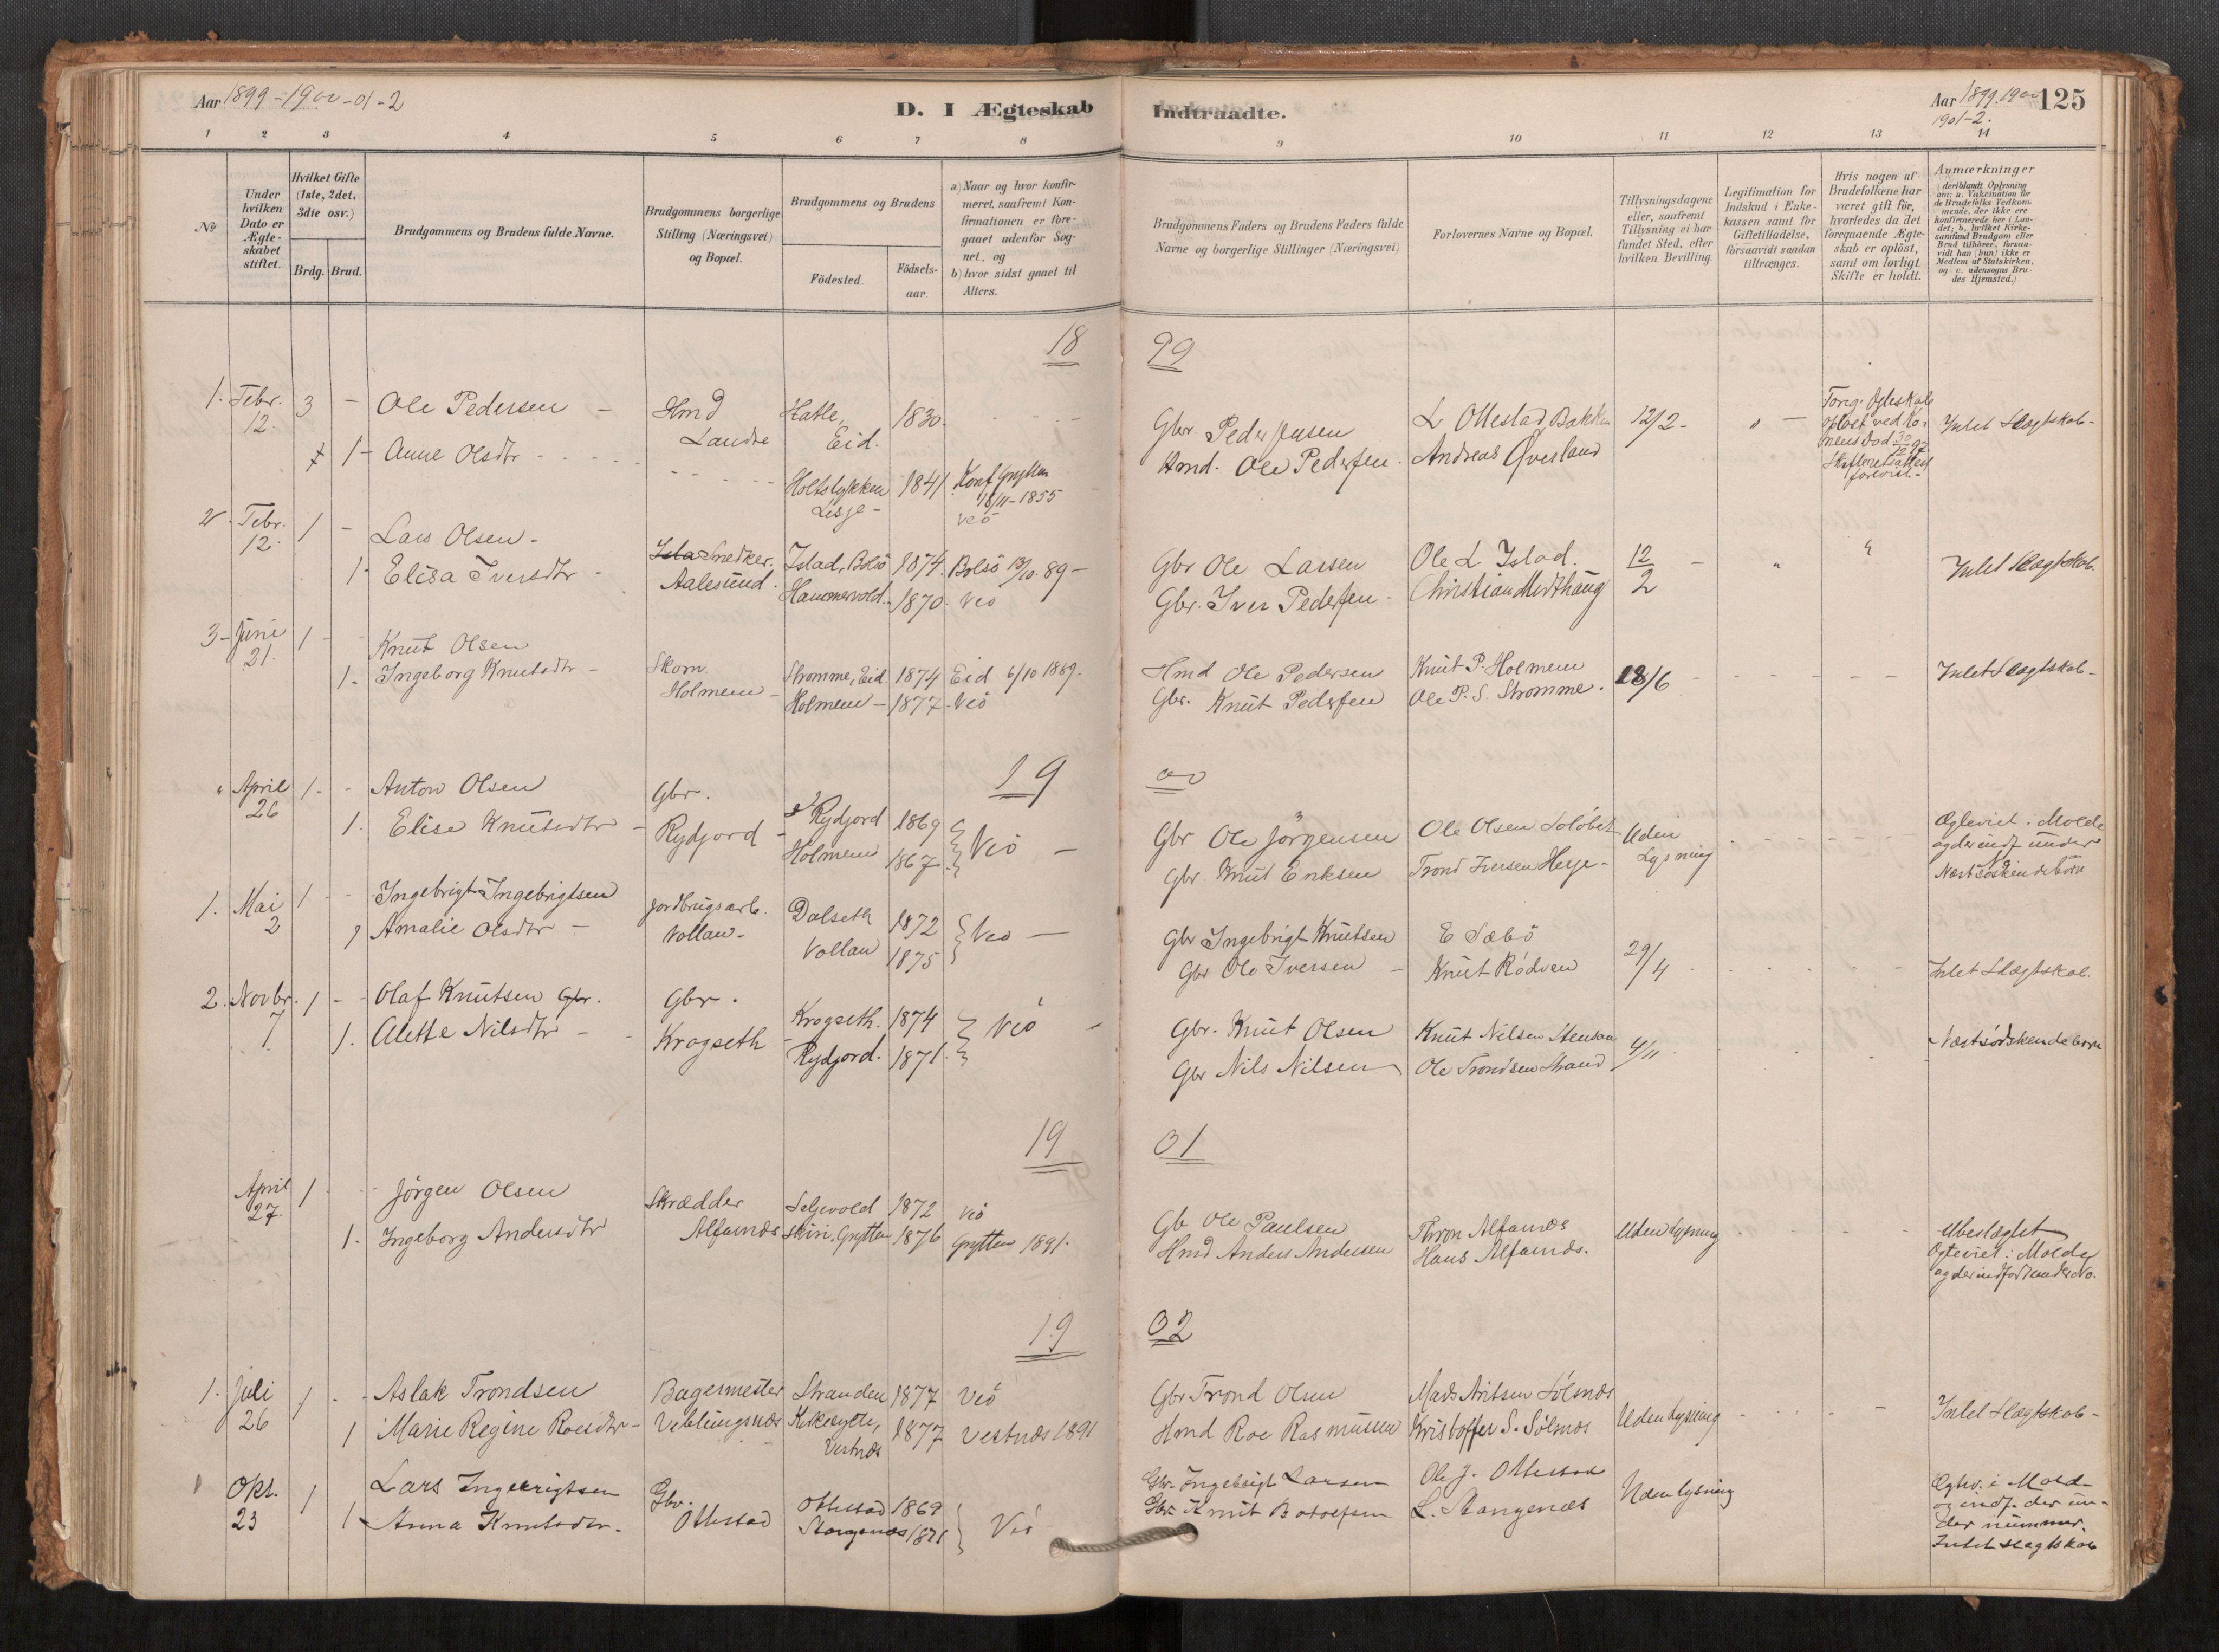 Aar 1899-1900-01-2
D. I Ægteskab Indtraadte.
Aar 1899.1900 125
1901-2.
1 2 3 4 5 6 7 8 9 10 11 12 13 14
No
Under hvilken Dato er Ægteskabet stiftet.
Hvilket Gifte (1ste, 2det, 3die osv.)
Brdg. Brud.
Brudgommens og Brudens fulde Navne.
Brudgommens borgerlige Stilling (Næringsvei) og Bopæl.
Brudgommens og Brudens
Födested.
Födselsaar.
a) Naar og hvor konfirmeret, saafremt Konfirmationen er foregaaet udenfor Sognet, og
b) hvor sidst gaaet til Alters.
Brudgommens Faders og Brudens Faders fulde Navne og borgerlige Stillinger (Næringsvei)
Forlovernes Navne og Bopæl.
Tillysningsdagene eller, saafremt Tillysning ei har fundet Sted, efter hvilken Bevilling.
Legitimation for Indskud i Enkekassen samt for Giftetilladelse, forsaavidt saadan tiltrænges.
Hvis nogen af Brudefolkene har været gift för, hvorledes da det foregaaende Ægteskab er oplöst, samt om lovligt Skifte er holdt.
Anmærkninger (deriblandt Oplysning om: a. Vakcination for de Brudefolks Vedkommende, der ikke ere konfirmerede her i Landet; b. hvilket Kirkesamfund Brudgom eller Brud tilhörer, forsaavidt han (hun) ikke er Medlem af Statskirken, og c. udensogns Brudes Hjemsted.)
18 99
1. Febr. 12. 3 - Ole Pedersen - Hmd Landre Hatle, Eid. 1830. Gbr. Peder Jensen L Ottestad Bakken 12/2 - Foreg. Ægteskab opløst ved Konens død Intet Slægtskab -
1 - Anne Olsdtr - Holtslykken 1841 Konf Grytten 1855 Veö Hmd. Ole Pedersen. Andreas Øverland
2. Febr. 12. 1 - Lars Olsen - Snedker. Aalesund. Istad, Bolsö 1874. Bolsö 13/10. 89 - Gbr Ole Larsen Ole L. Istad. 12/2 - Intet Slægtskab.
1 Elisa Iversdtr - Hammervold. 1870. Veö Gbr. Iver Pedersen - Christian Midthaug
3 - Juni 21. 1 - Knut Olsen Skom. Holmem - Stromme, Eid 1874 Eid 6/10 1889. Hmd Ole Pedersen Knut P. Holmem 18/6 Intet Slægtskab -
1. Ingeborg Knutsdtr - Holmem - 1877. Veö Gbr. Knut Pedersen Ole P. S. Stromme.
19 00
" April 26 1 - Anton Olsen Gbr. Rydjord - Rydjord 1869 Veö - Gbr Ole Jörgensen Ole Olsen Uden Lysning Ægteviet i Molde og der indf under No
1. Elise Knutsdtr - Holmem 1867 Gbr. Knut Eriksen Trond Iversen Herje - Næstsöskendebörn
1. Mai 2 1 - Ingebrigt Ingebrigtsen Jordbrugsarb. Vollan - Dalseth 1872 Veö - Gbr Ingebrigt Knutsen E Sæbö 29/4 Intet Slægtskab.
1 Amalie Olsdtr - Vollan 1875 Gbr Ole Iversen - Knut Rödven
2. Novbr. 7 1 - Olaf Knutsen Gbr. Gbr. Krogseth Krogseth. 1874 Veö - Gbr. Knut Olsen Knut Nilsen 4/11 Næstsödskendeborn
1. Alette Nilsdtr - Rydjord. 1871. Gbr Nils Nilsen Ole Trondsen Strand
19 01
April 27. 1 Jörgen Olsen Skrædder Alfarnæs Seljevold 1872 Veö Gb Ole Paulsen Thron Alfarnæs Uden Lysning Ubeslægtet
1. Ingeborg Andersdtr Skiri, Grytten 1876 Grytten 1891. Hmd Anders Andersen Hans Alfarnæs. Ægteviet i Molde og der indført under No.
19 02
1. Juli 26 1 - Aslak Trondsen Bagermester Veblungsnæs Stranden 1877 Veö Gbr Trond Olsen Mads Antsen Sölsnæs Uden Lysning Intet Slægtskab -
1 Marie Regine Roesdtr - Vestnæs 1877 Vestnæs 1891 Hmd Roe Rasmussen Kristoffer S. Sölsnæs
Okt. 23 1 Lars Ingebrigtsen Gbr. Ottestad Ottestad 1869 Veö Gbr. Ingebrigt Larsen Ole J. Ottestad Uden lysning Ægtev. i Molde og indf. der under nummer.
1 Anna Knutsdtr. Stangenæs 1871 Gbr Knut Botolfsen L. Stangenæs Intet slægtskab